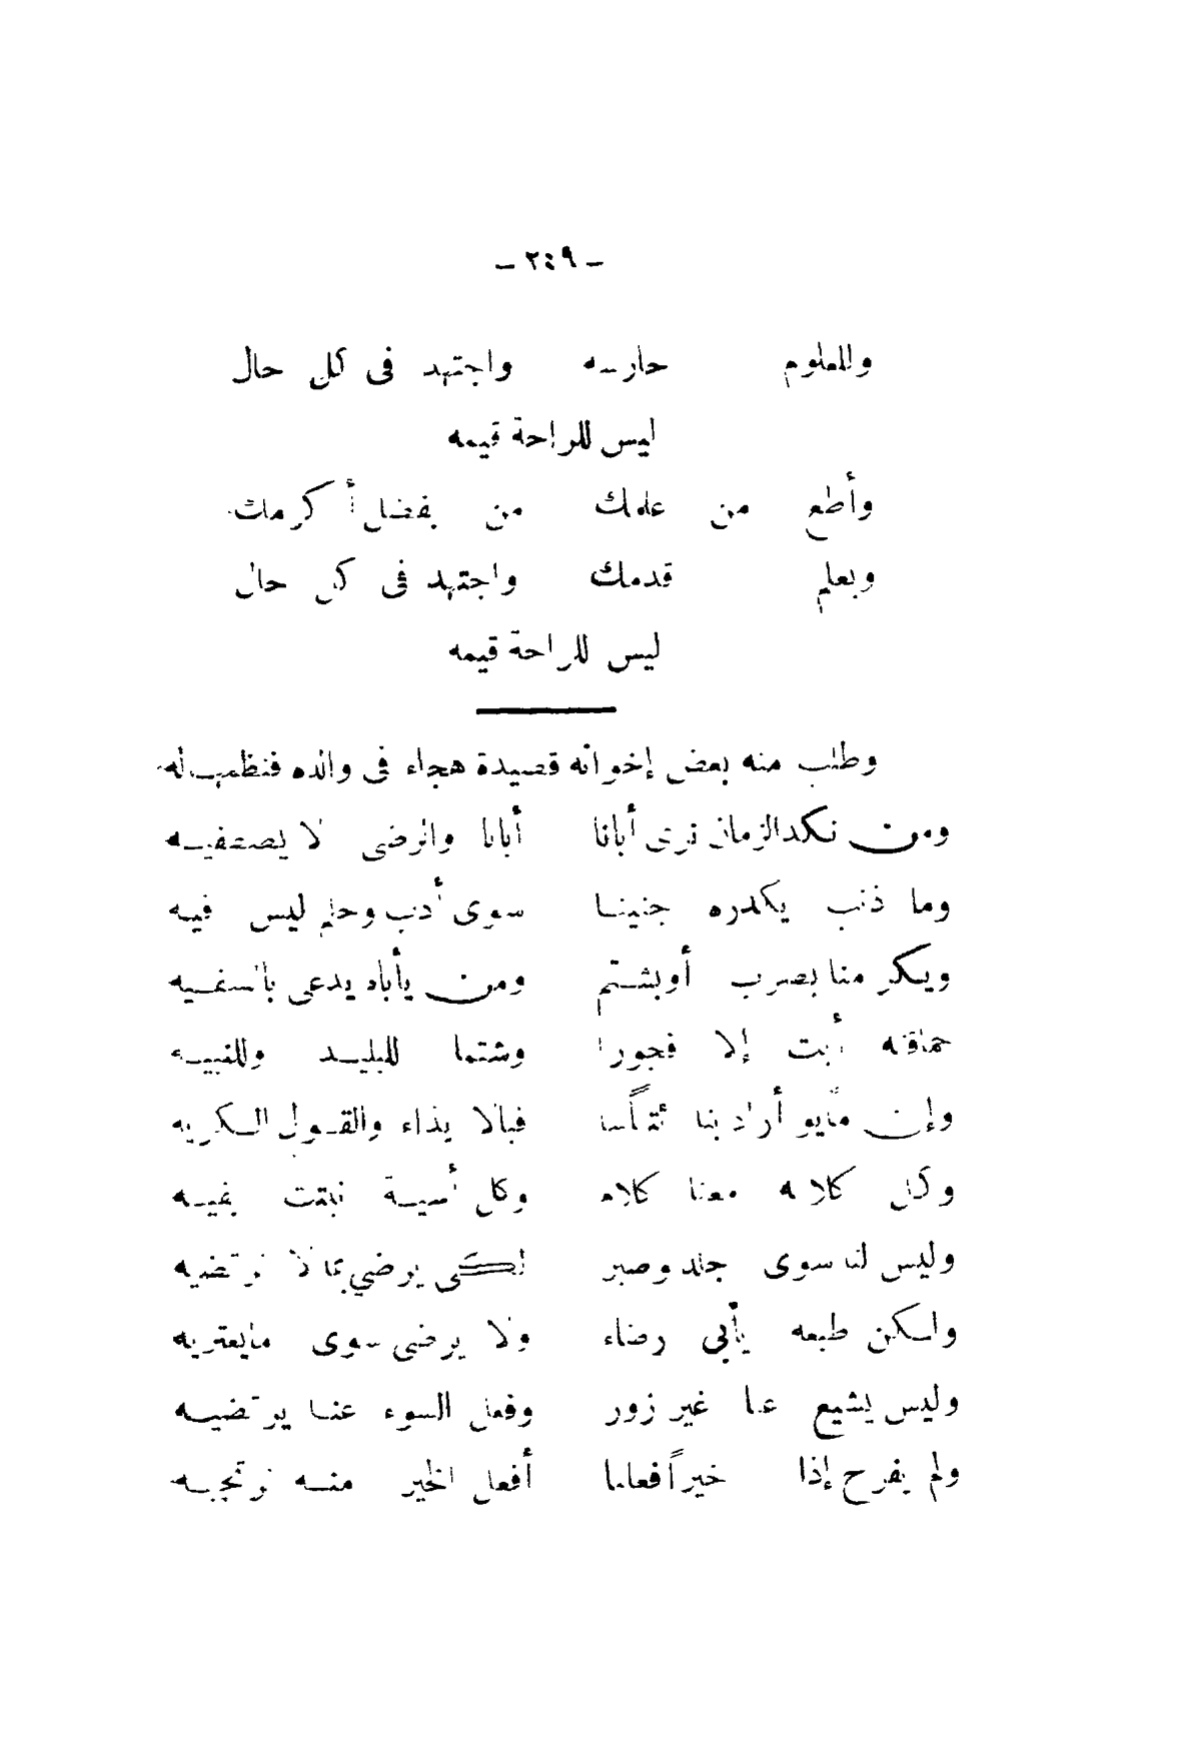 - ٢٤٩ -
وللعلوم حارسه واجتهد فى كل حال
ليس للراحة قيمه
وأطع من علمك من بفضل أكرمك
وبعلم قدمك واجتهد فى كل حال
ليس للراحة قيمه
وطلب منه بعض إخوانه قصيدة هجاء فى والده فنظمها له
ومن نكد الزمان نرى أبانا أبانا والرضى لا يصطفيه
وما ذنب يكدره جنينا سوى أدب وحلم ليس فيه
ويكرمنا بضرب أو بشتم ومن يأباه يدعى بالسفيه
حماقته أبت إلا فجورا وشتما للبليد وللنبيه
وإن أراد بنا فبالايذاء والقول الكريه
وكل كلامه معنا كلام وكل أسية نبتت بفيه
وليس لنا سوى جلد وصبر لكى يرضي بما لا نرتضيه
ولكن طبعه يأبي رضاء ولا يرضى سوى مايعتريه
وليس يشيع عنا غير زور وفعل السوء عنا يرتضيه
ولم يفرح إذا خيراً فعلنا أفعل الخير منه نرتجيه